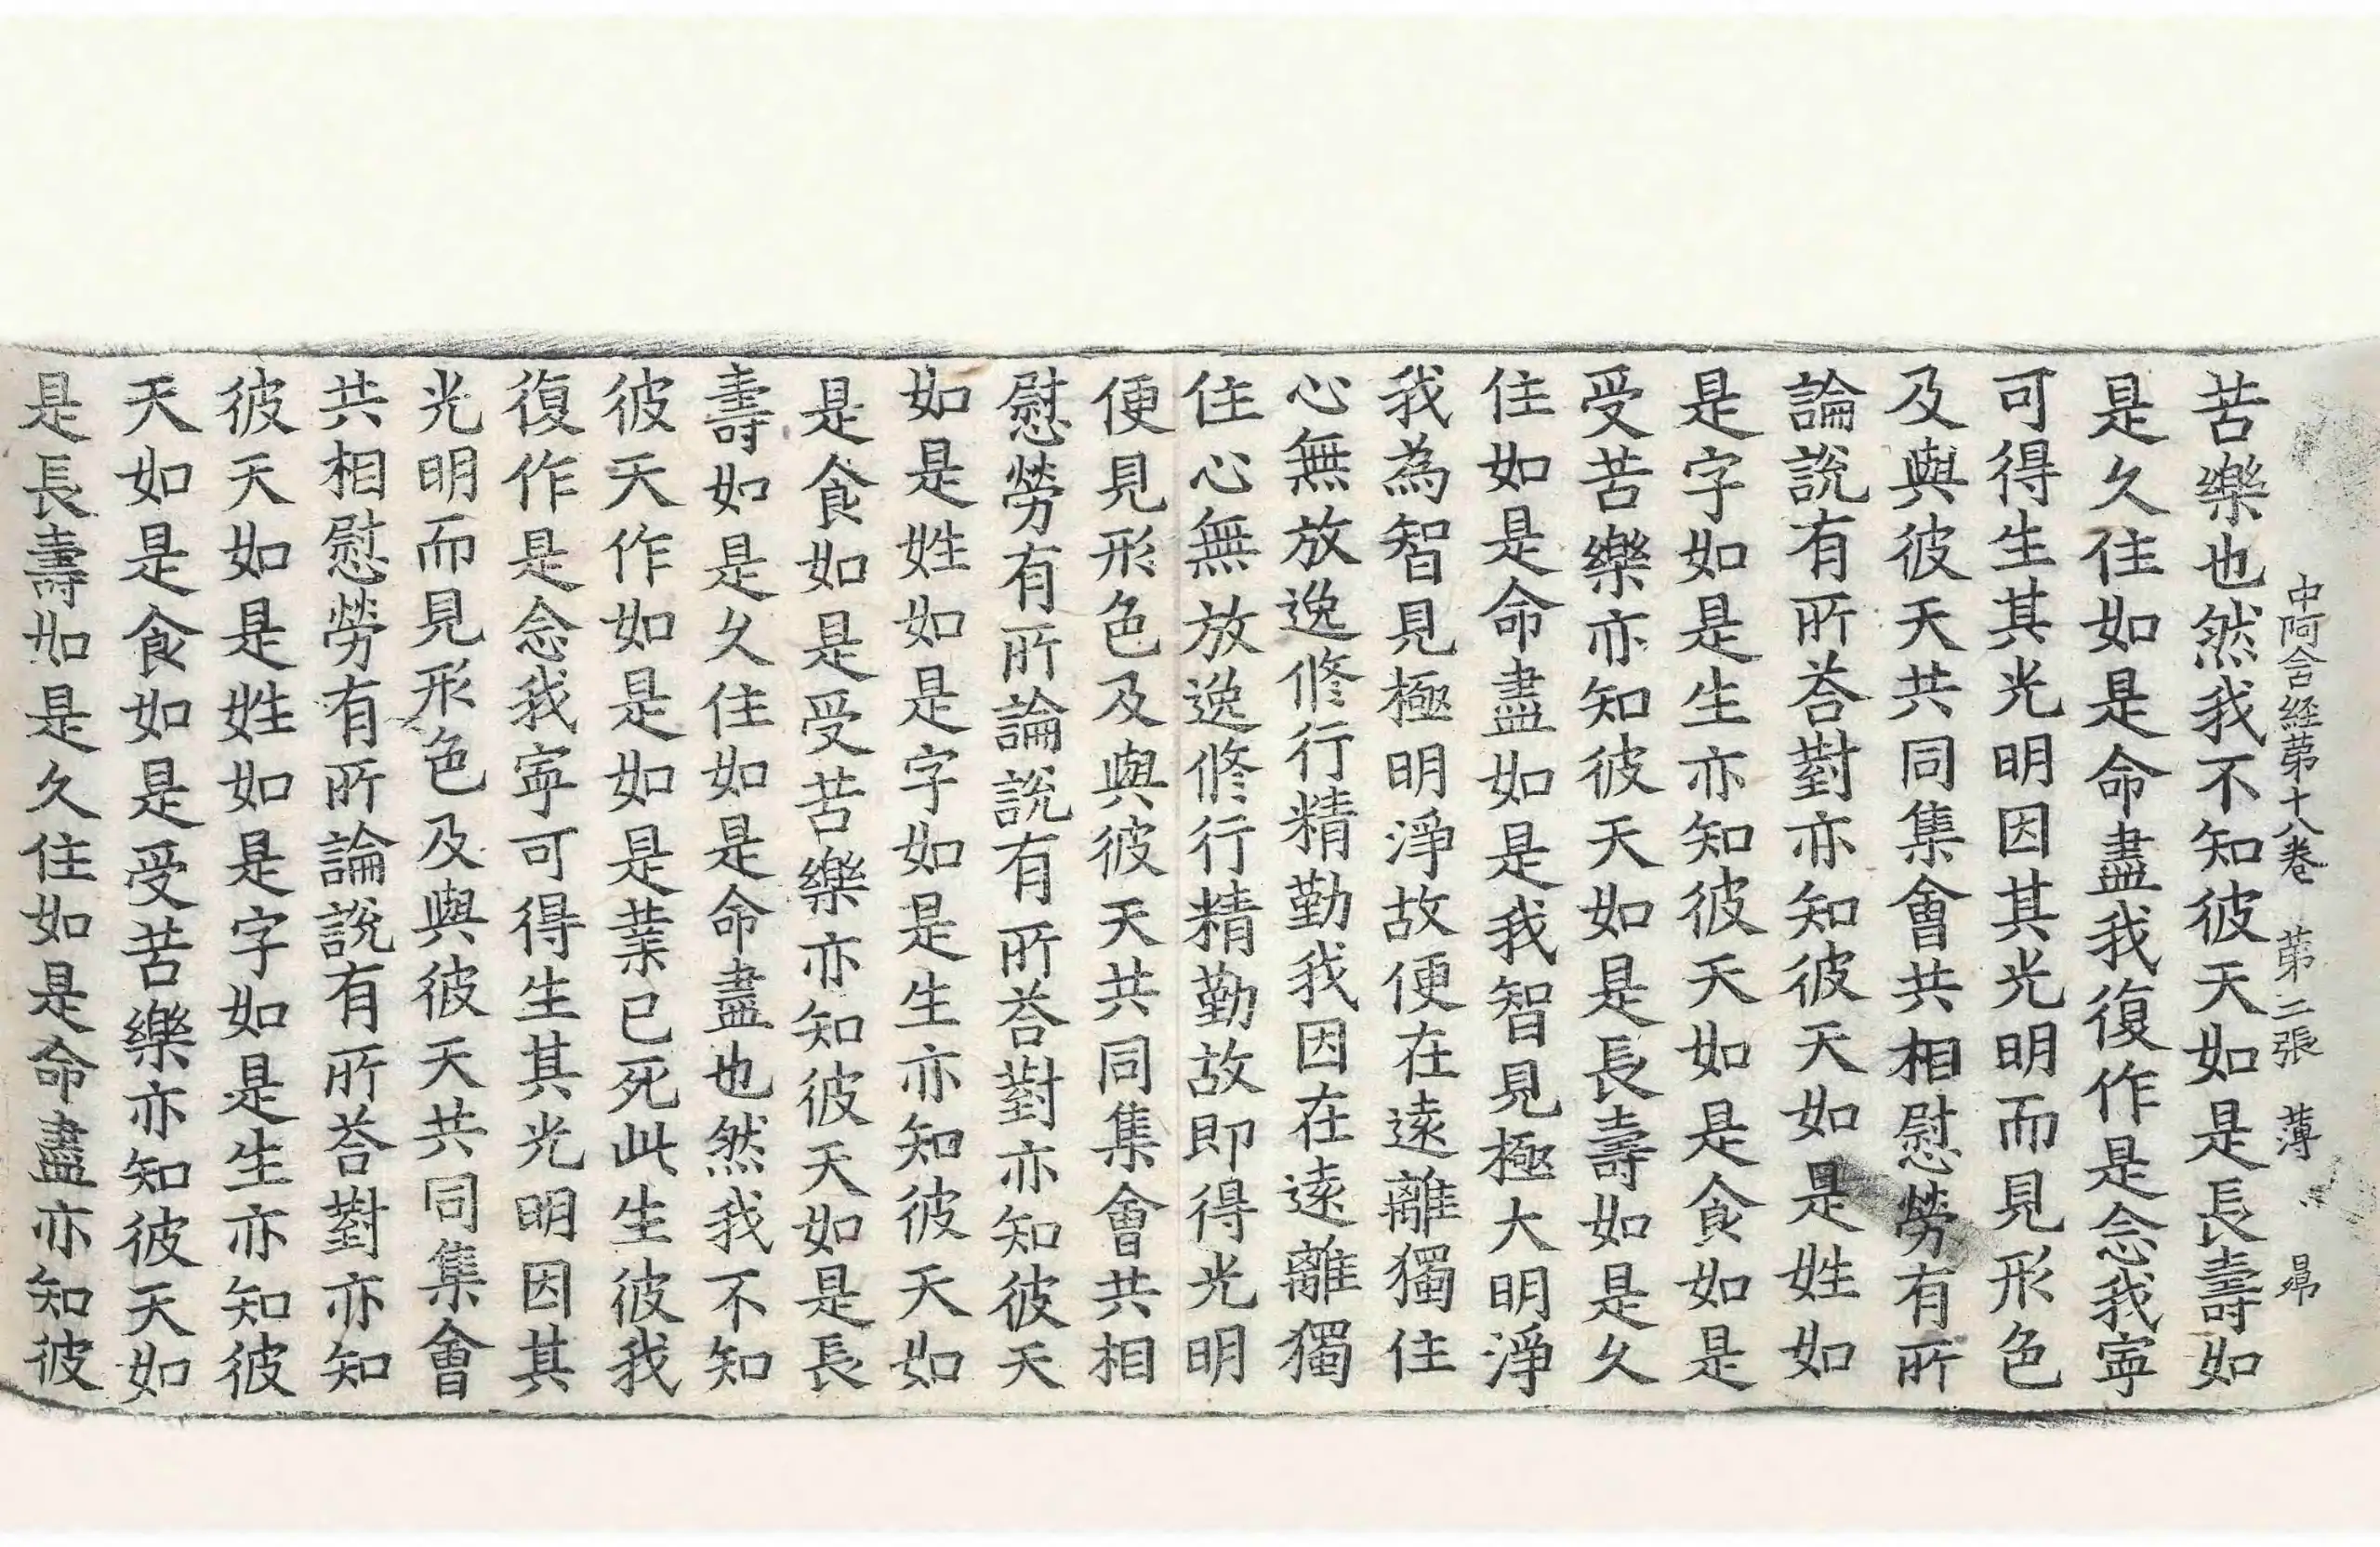 中阿含経第十八卷 第三張 薄 昴
苦樂也然我不知彼天如是長壽如
是久住如是命盡我復作是念我寧
可得生其光明因其光明而見形色
及與彼天共同集會共相慰勞有所
論說有所荅對亦知彼天如是姓如
是字如是生亦知彼天如是食如是
受苦樂亦知彼天如是長壽如是久
住如是命盡如是我智見極大明淨
我為智見極明淨故便在遠離獨住
心無放逸修行精勤我因在遠離獨
住心無放逸修行精勤故即得光明
便見形色及與彼天共同集會共相
慰勞有所論說有所荅對亦知彼天
如是姓如是字如是生亦知彼天如
是食如是受苦樂亦知彼天如是長
壽如是久住如是命盡也然我不知
彼天作如是如是業已死此生彼我
復作是念我寧可得生其光明因其
光明而見形色及與彼天共同集會
共相慰勞有所論說有所荅對亦知
彼天如是姓如是字如是生亦知彼
天如是食如是受苦樂亦知彼天如
是長壽如是久住如是命盡亦知彼